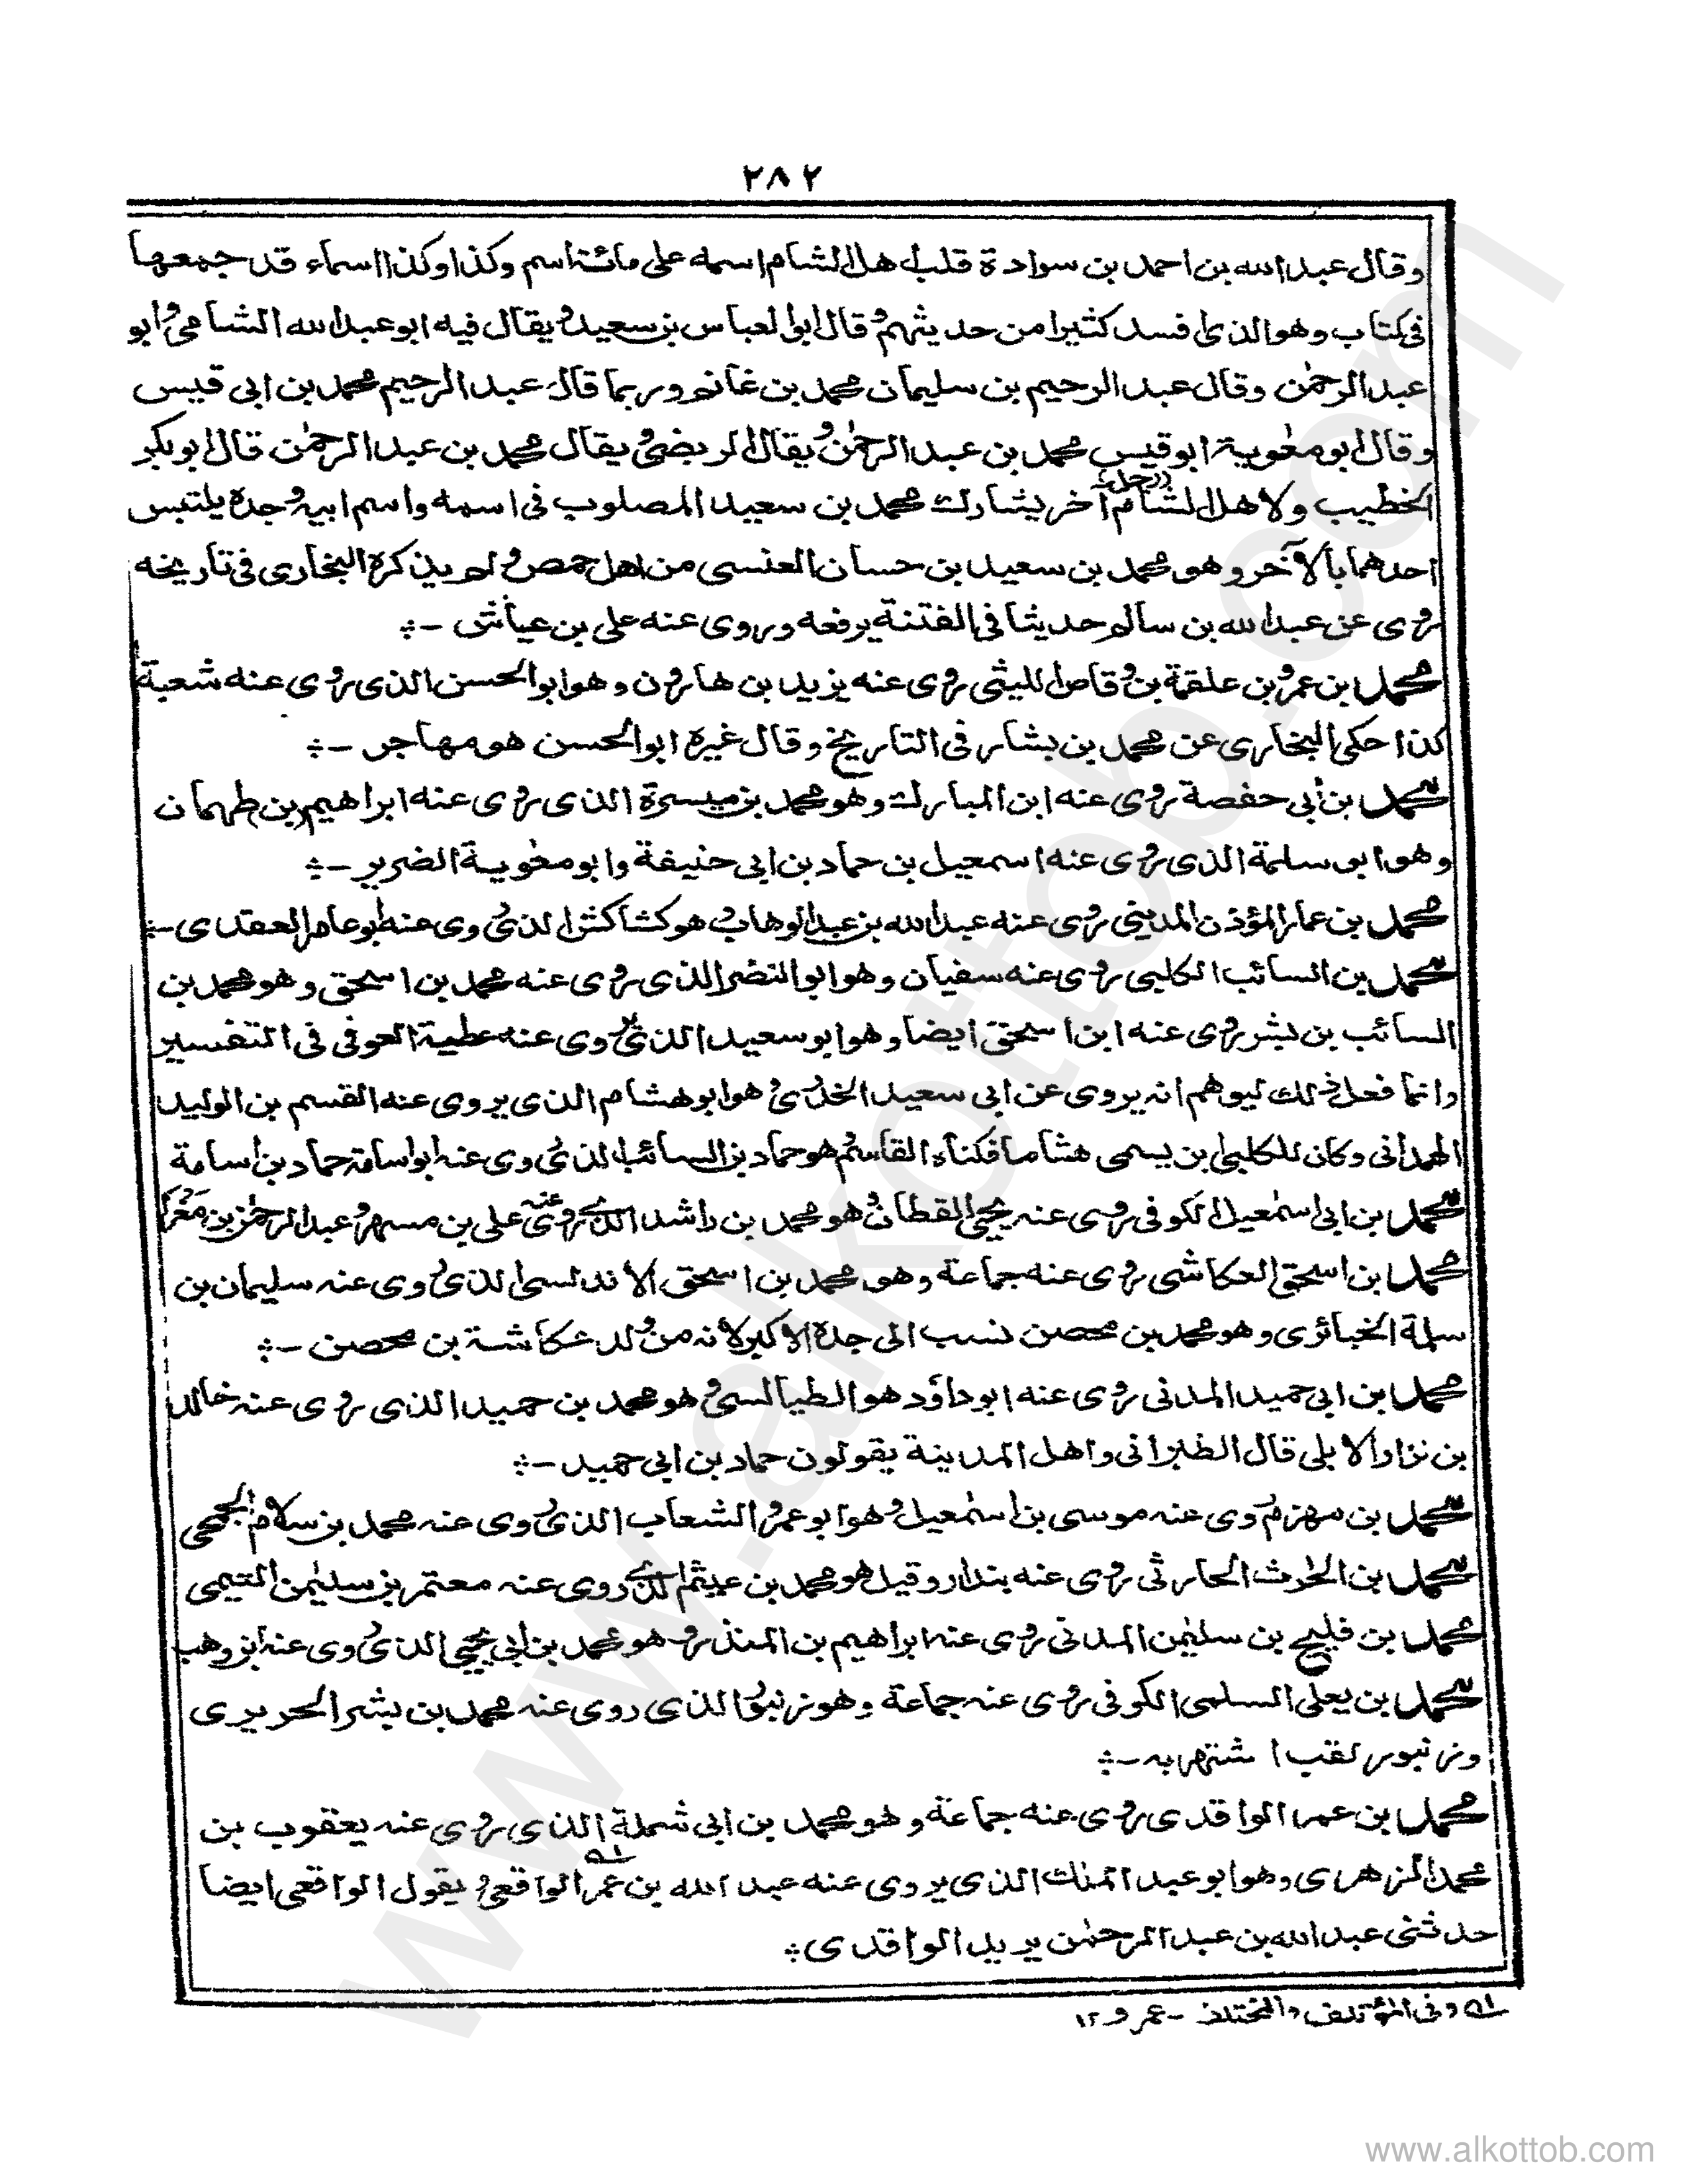 ٢٨٢
وقال عبدالله بن احمد بن سوادة قلب اهل الشام اسمه على مائة اسم وكذا وكذا اسماء قد جمعها
فى كتاب وهو الذى افسد كثيرا من حديثهم وقال ابو العباس بن سعيد ويقال فيه ابو عبدالله الشامى وابو
عبدالرحمٰن وقال عبدالرحيم بن سليمان محمد بن غانم وربما قال عبدالرحيم محمد بن ابى قيس
وقال ابو معٰوية ابو قيس محمد بن عبدالرحمٰن ويقال الربضى ويقال محمد بن عبدالرحمٰن قال ابو بكر
الخطيب ولاهل الشام (رجل) آخر يشارك محمد بن سعيد المصلوب فى اسمه واسم ابيه وجده يلتبس
احدهما بالآخر وهو محمد بن سعيد بن حسان العنسى من اهل حمص ولم يذكره البخارى فى تاريخه
روى عن عبدالله بن سالم حديثا فى الفتنة يرفعه وروى عنه على بن عياش -÷
محمد بن عمرو بن علقمة بن وقاص الليثى روى عنه يزيد بن هارون وهو ابو الحسن الذى روى عنه شعبة
كذا حكى البخارى عن محمد بن بشار فى التاريخ وقال غيره ابو الحسن هو مهاجر -÷
محمد بن أبى حفصة روى عنه ابن المبارك وهو محمد بن ميسرة الذى روى عنه ابراهيم (بن) طهمان
وهو ابو سلمة الذى روى عنه اسمعيل بن حماد بن ابى حنيفة وابو معٰوية الضرير -÷
محمد بن عمار المؤذن المدينى روى عنه عبدالله بن عبدالوهاب وهو كشاكش الذى روى عنه ابو عامر العقدى -÷
محمد بن السائب الكلبى روى عنه سفيان وهو ابو النضر الذى روى عنه محمد بن اسحق وهو محمد بن
السائب بن بشر روى عنه ابن اسحق ايضا وهو ابو سعيد الذى روى عنه عطية العوفى فى التفسير
وانما فعل ذلك ليوهم انه يروى عن ابى سعيد الخدرى وهو ابو هشام الذى يروى عنه القسم بن الوليد
الهمدانى وكان للكلبى ابن يسمى هشاما فكناه القاسم وهو حماد بن السائب الذى روى عنه ابو اسامة حماد بن اسامة
محمد بن ابى اسمٰعيل الكوفى روى عنه يحيى القطان وهو محمد بن راشد الذى روى عنه على بن مسهر وعبدالرحمٰن بن مَغْرا
محمد بن اسحق العكاشى روى عنه جماعة وهو محمد بن اسحق الاندلسى الذى روى عنه سليمان بن
سلمة الخبائرى وهو محمد بن محصن نسب الى جده الاكبر لانه من ولد عكاشة بن محصن -÷
محمد بن ابى حميد المدنى روى عنه ابو داؤد هو الطيالسى وهو محمد بن حميد الذى روى عنه خالد
بن نزار الايلى قال الطبرانى واهل المدينة يقولون حماد بن ابى حميد -÷
محمد بن مهزم روى عنه موسى بن اسمٰعيل وهو ابو عمرو الشعاب الذى روى عنه محمد بن سلام الجمحى
محمد بن الحٰرث الحارثى روى عنه بندار وقيل هو محمد بن عيثم الذى روى عنه معتمر بن سليمٰن التيمى
محمد بن فليح بن سليمٰن المدنى روى عنه ابراهيم بن المنذر وهو محمد بن ابى يحيى الذى روى عنه ابن وهب
محمد بن يعلى السلمى الكوفى روى عنه جماعة وهو زنبور الذى روى عنه محمد بن بشر الحريرى
وزنبور لقب اشتهر به -÷
محمد بن عمر الواقدى روى عنه جماعة وهو محمد بن ابى شملة الذى روى عنه يعقوب بن
محمد الزهرى وهو ابو عبد الملك الذى يروى عنه عبدالله بن عمر ؁١ الواقعى ويقول الواقعى ايضا
حدثنى عبدالله بن عبدالرحمٰن يريد الواقدى ÷
؁١ وفى المؤتلف والمختلف - عمرو ١٢
www.alkottob.com
www.alkottob.com